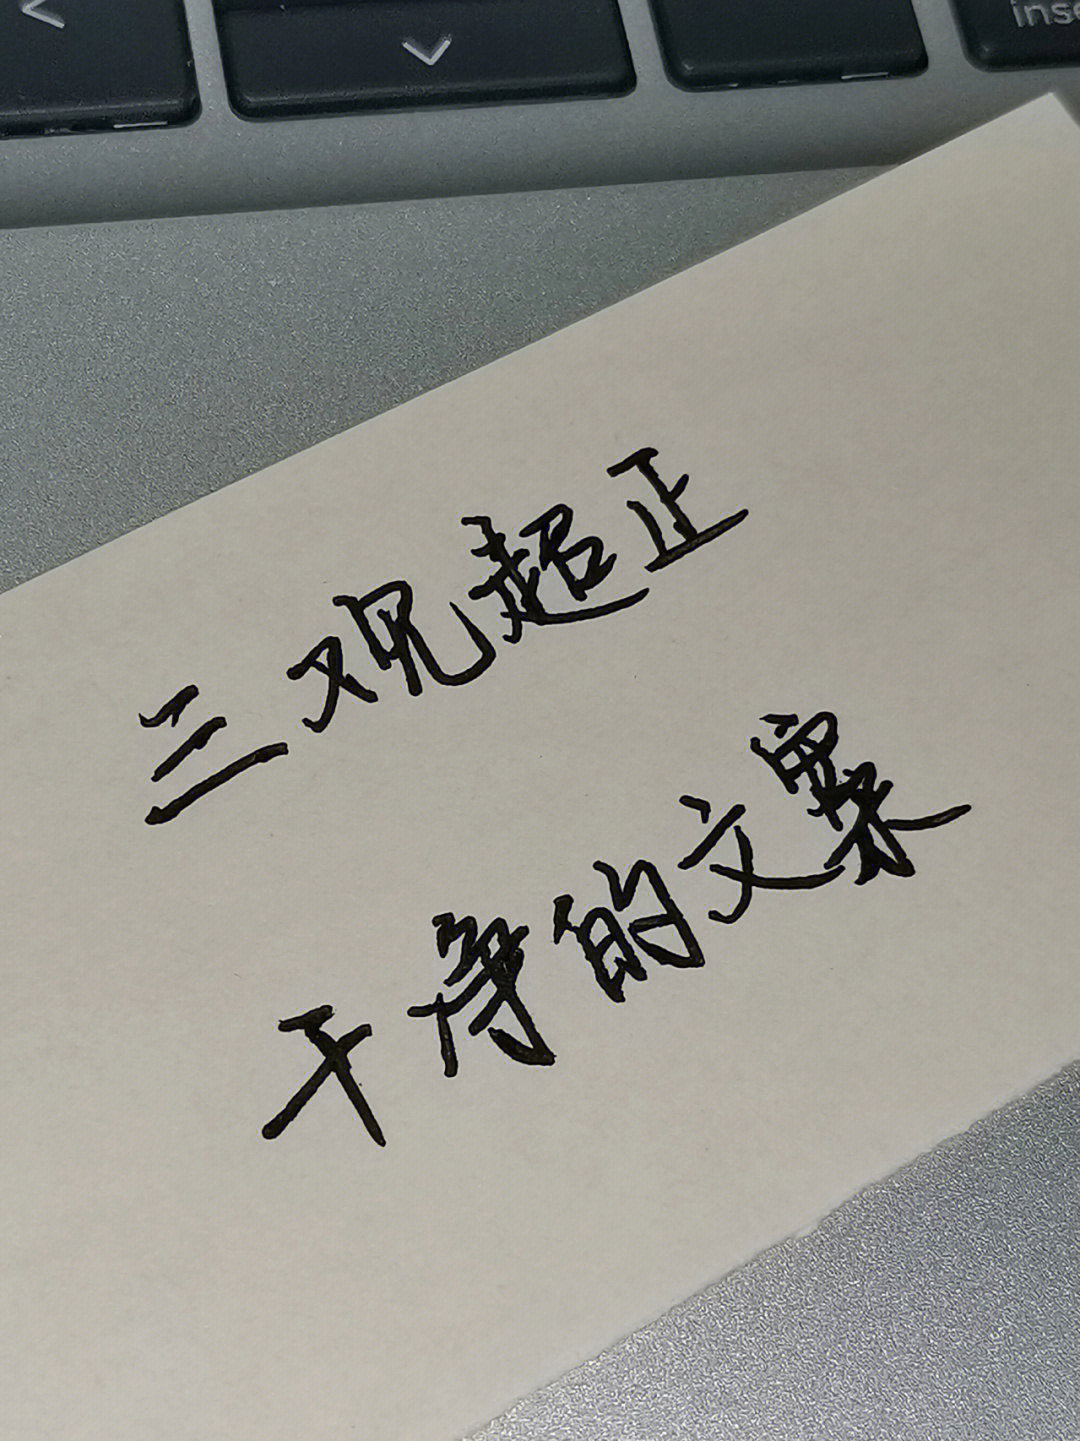 inse
三观超正
干净的文案